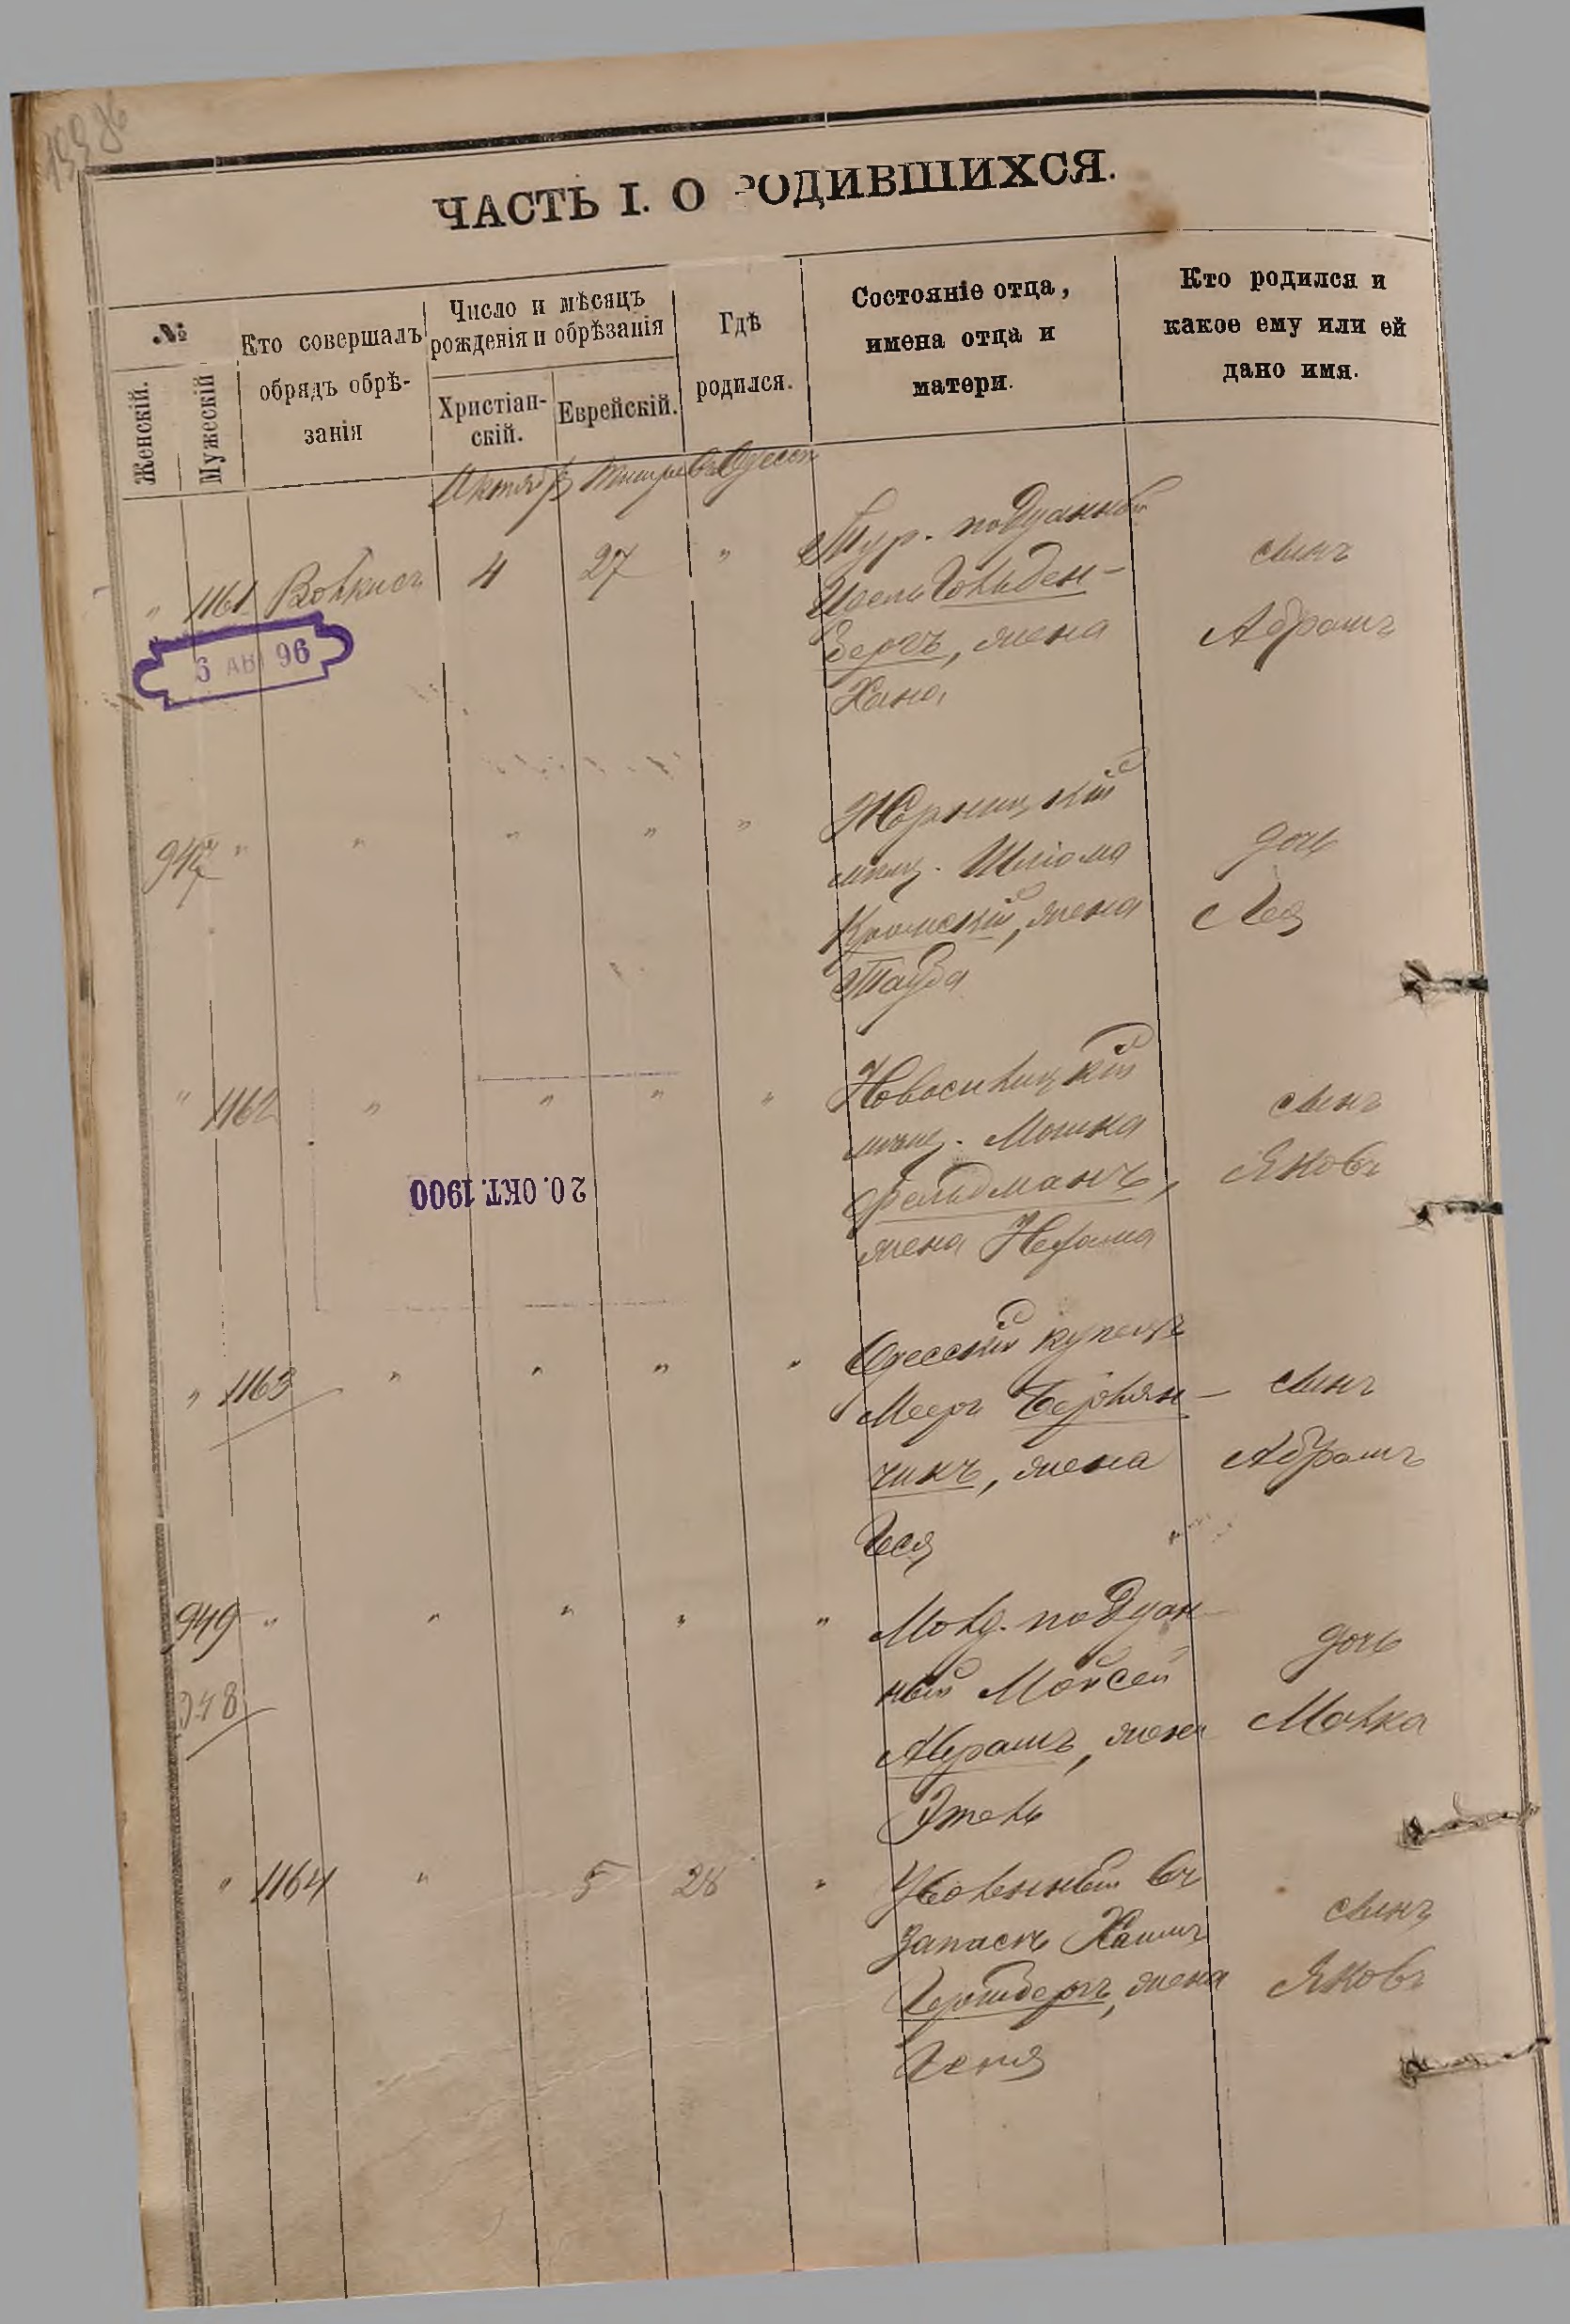 ЧАСТЬ I. О РОДИВШИХСЯ.
№
Женскій.
Мужескій
Кто совершалъ
обрядъ обрѣ-
занія
Число и мѣсяцъ
рожденія и обрѣзанія
Христіан-
скій.
Еврейскій.
Гдѣ
родился.
Состояніе отца,
имена отца и
матери.
Кто родился и
какое ему или ей
дано имя.
Октябрь Тишри Въ Одессѣ
" 1161 Волкисъ 4 27 " Тур. подданный
Идель Гольден-
бергъ, жена
Хана
сынъ
Абрамъ
6 АВГ 96
947 " " " " "
мѣщ. Шлома
Кромскій, жена
Тауба
дочь
Лея
" 1162 " " " " Новоселицкій
мѣщ. Мошка
Фельдманъ,
жена Нехама
сынъ
Яковъ
20. ОКТ. 1900
" 1163 " " " " Одесскій купецъ
Мееръ Берлян-
чикъ, жена
Геся
сынъ
Абрамъ
949 " " " " " Молд. поддан-
ный Мойсей
Абрамъ, жена
Этель
дочь
Малка
948
" 1164 " 5 28 " Уволенный въ
запасъ Хаимъ
Гершбергъ, жена
Геня
сынъ
Яковъ